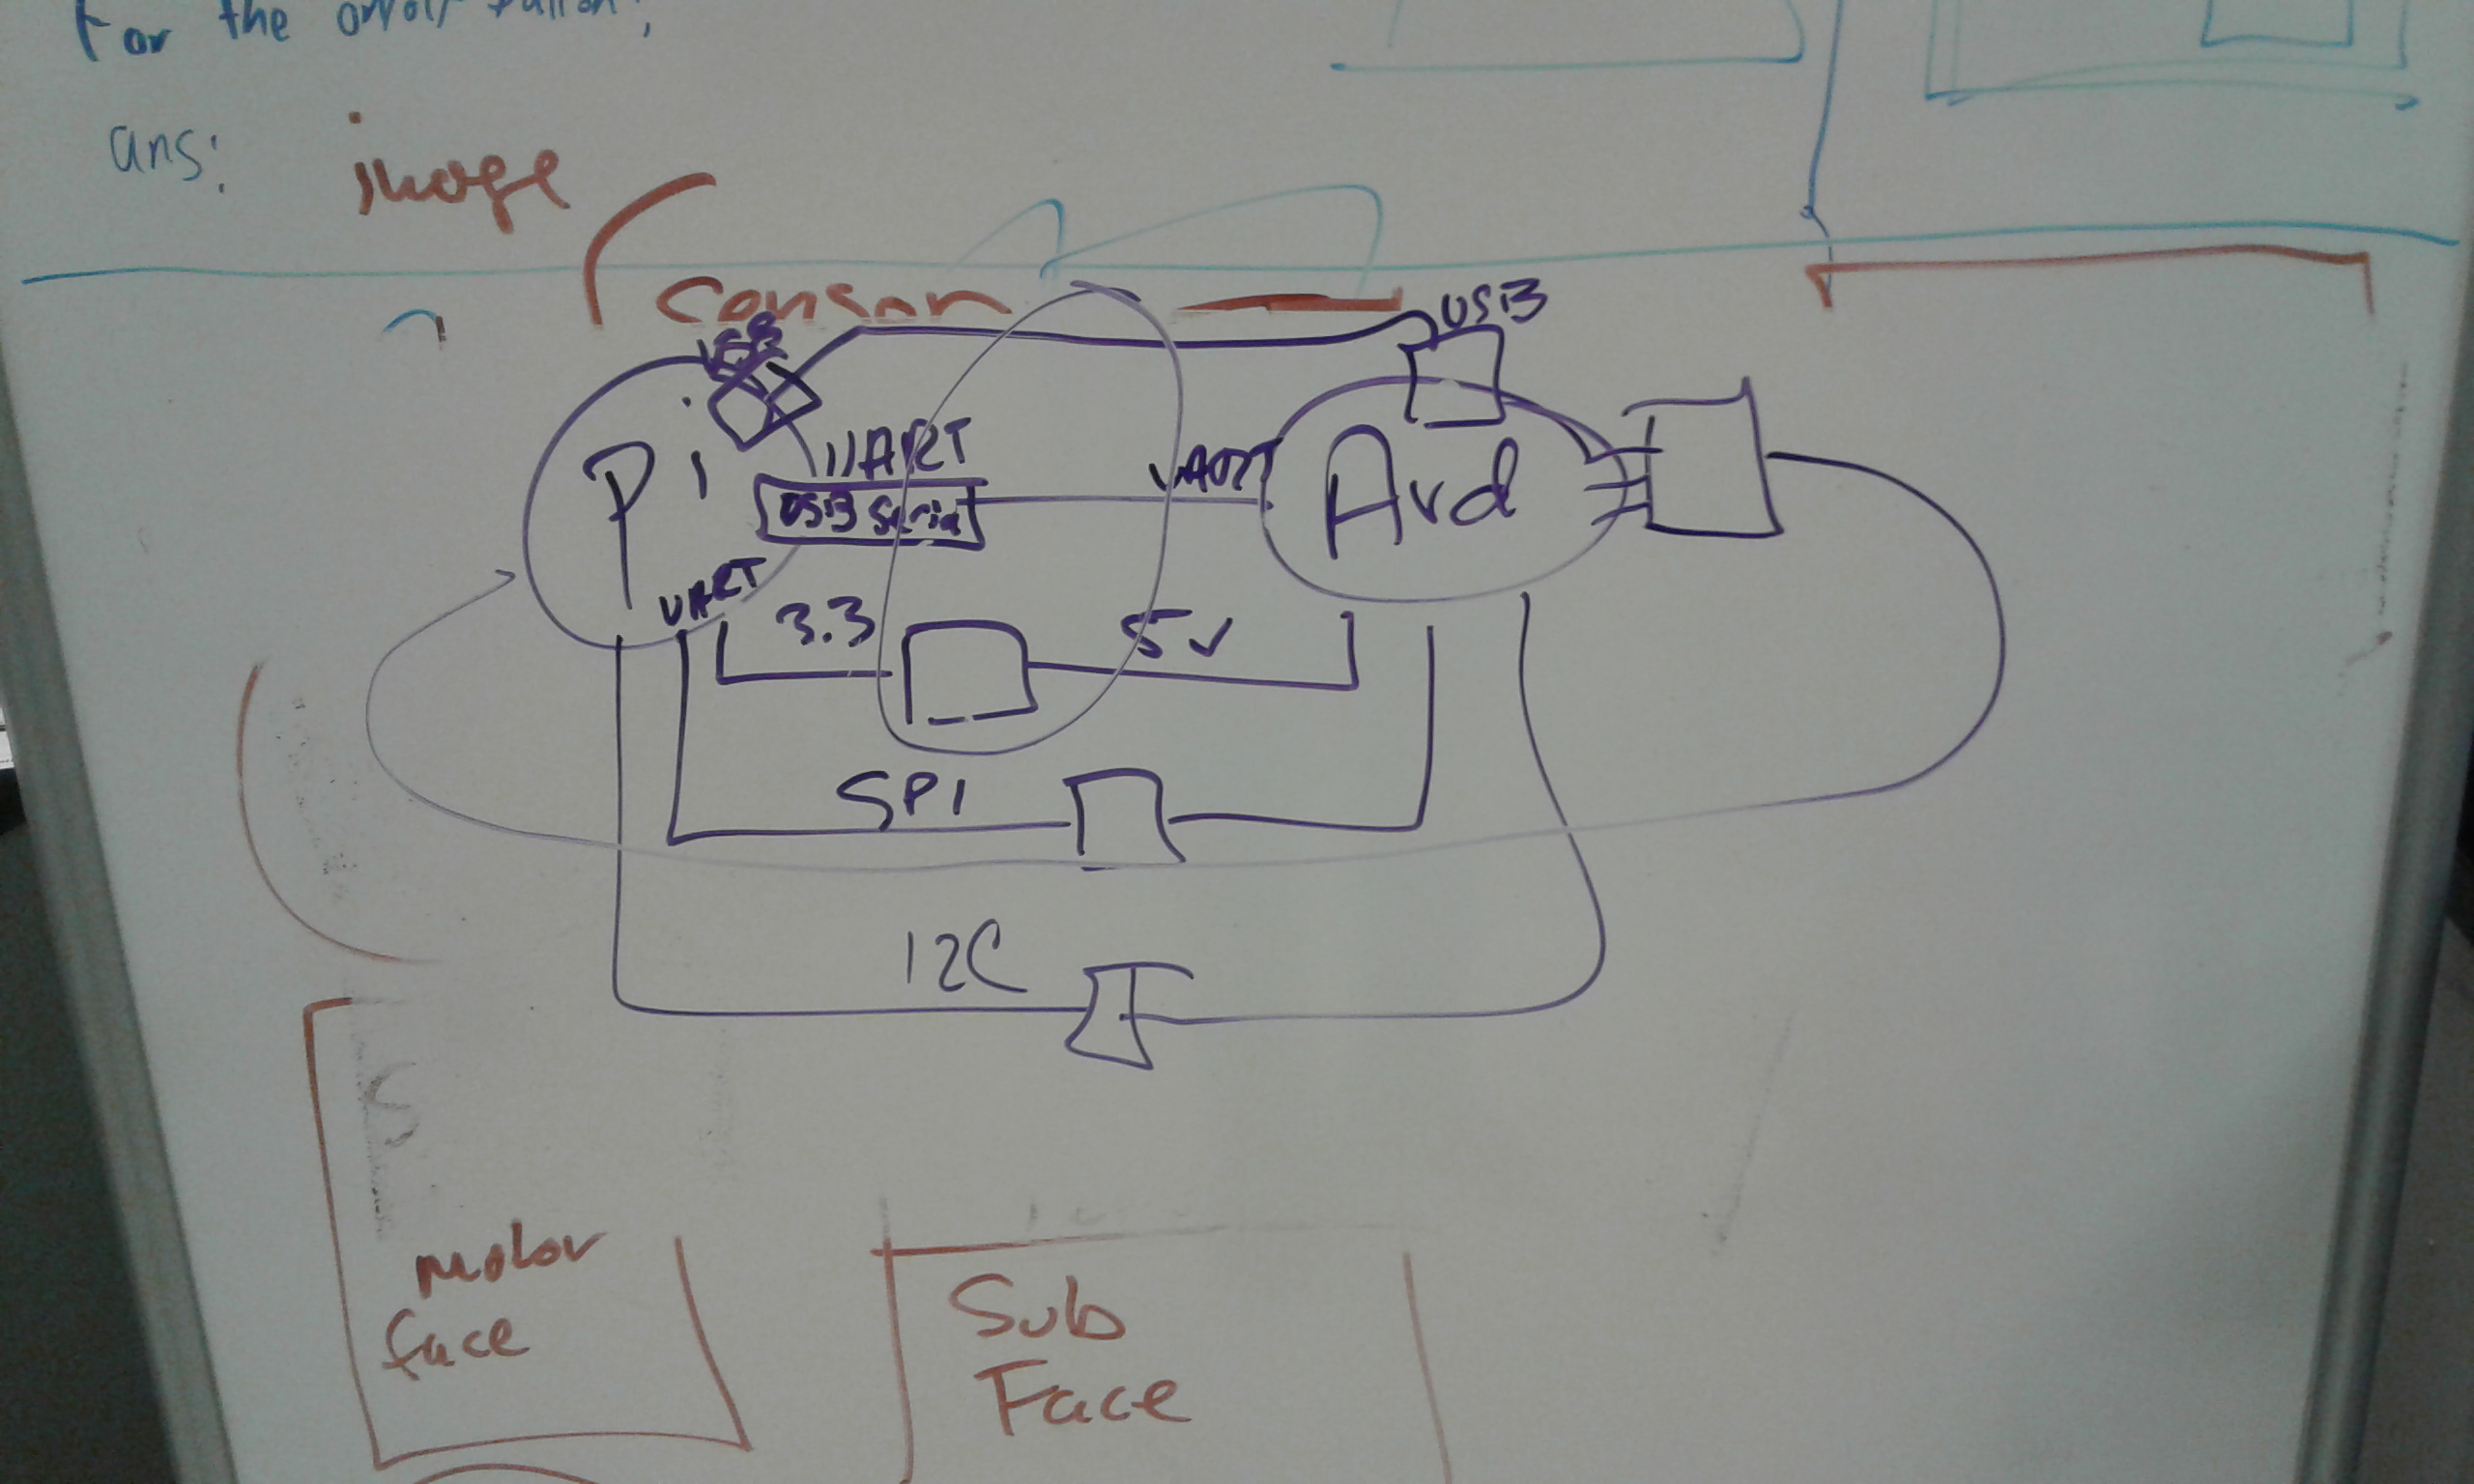 For the on/off button,
ans: image
USB
USB
Pi
UART
USB Serial
UART
Ard
UART
3.3
5v
SPI
I2C
motor
face
Sub
Face